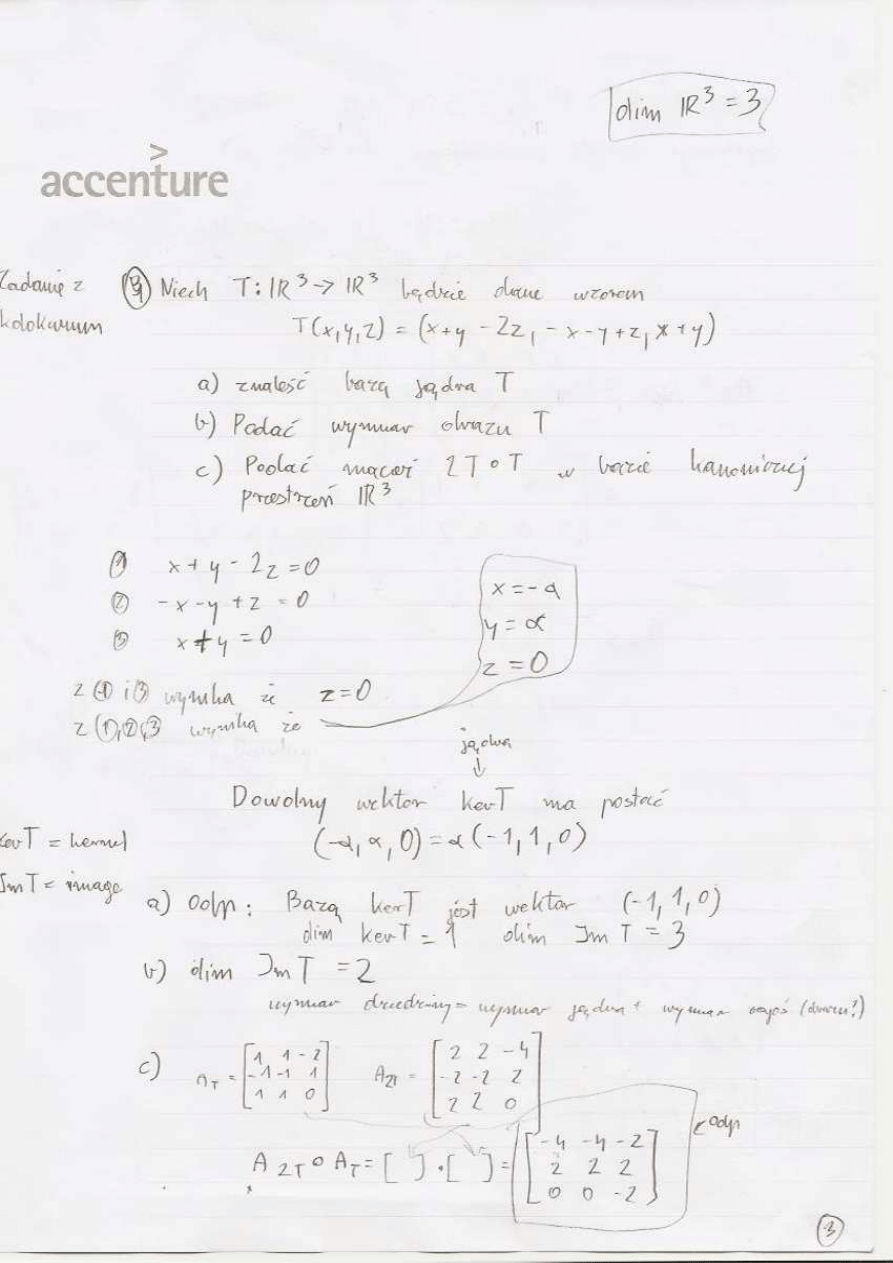 dim IR³ = 3
>
accenture
Zadanie z
kolokwium
Niech T: IR³ -> IR³ będzie dane wzorem
T(x,y,z) = (x+y - 2z, -x-y+z, x+y)
a) znaleść bazę jądra T
b) Podać wymiar obrazu T
c) Podać macierz 2T∘T w bazie kanonicznej
przestrzeń IR³
① x + y - 2z = 0
② -x - y + z = 0
③ x + y = 0
x = -α
y = α
z = 0
z ① i ③ wynika że z=0
z ①,②,③ wynika że
jądra
↓
Dowolny wektor kerT ma postać
(-α, α, 0) = α(-1, 1, 0)
kerT = kernel
ImT = image
a) Odp: Bazą kerT jest wektor (-1, 1, 0)
dim kerT = 1 dim Im T = 3
b) dim Im T = 2
wymiar dziedziny = wymiar jądra + wymiar (obrazu?)
c) A_T = [1 1 -2
-1 -1 1
1 1 0]
A_2T = [2 2 -4
-2 -2 2
2 2 0]
A_2T ∘ A_T = [ ] · [ ] = [-4 -4 -2
2 2 2
0 0 -2]
odp
3